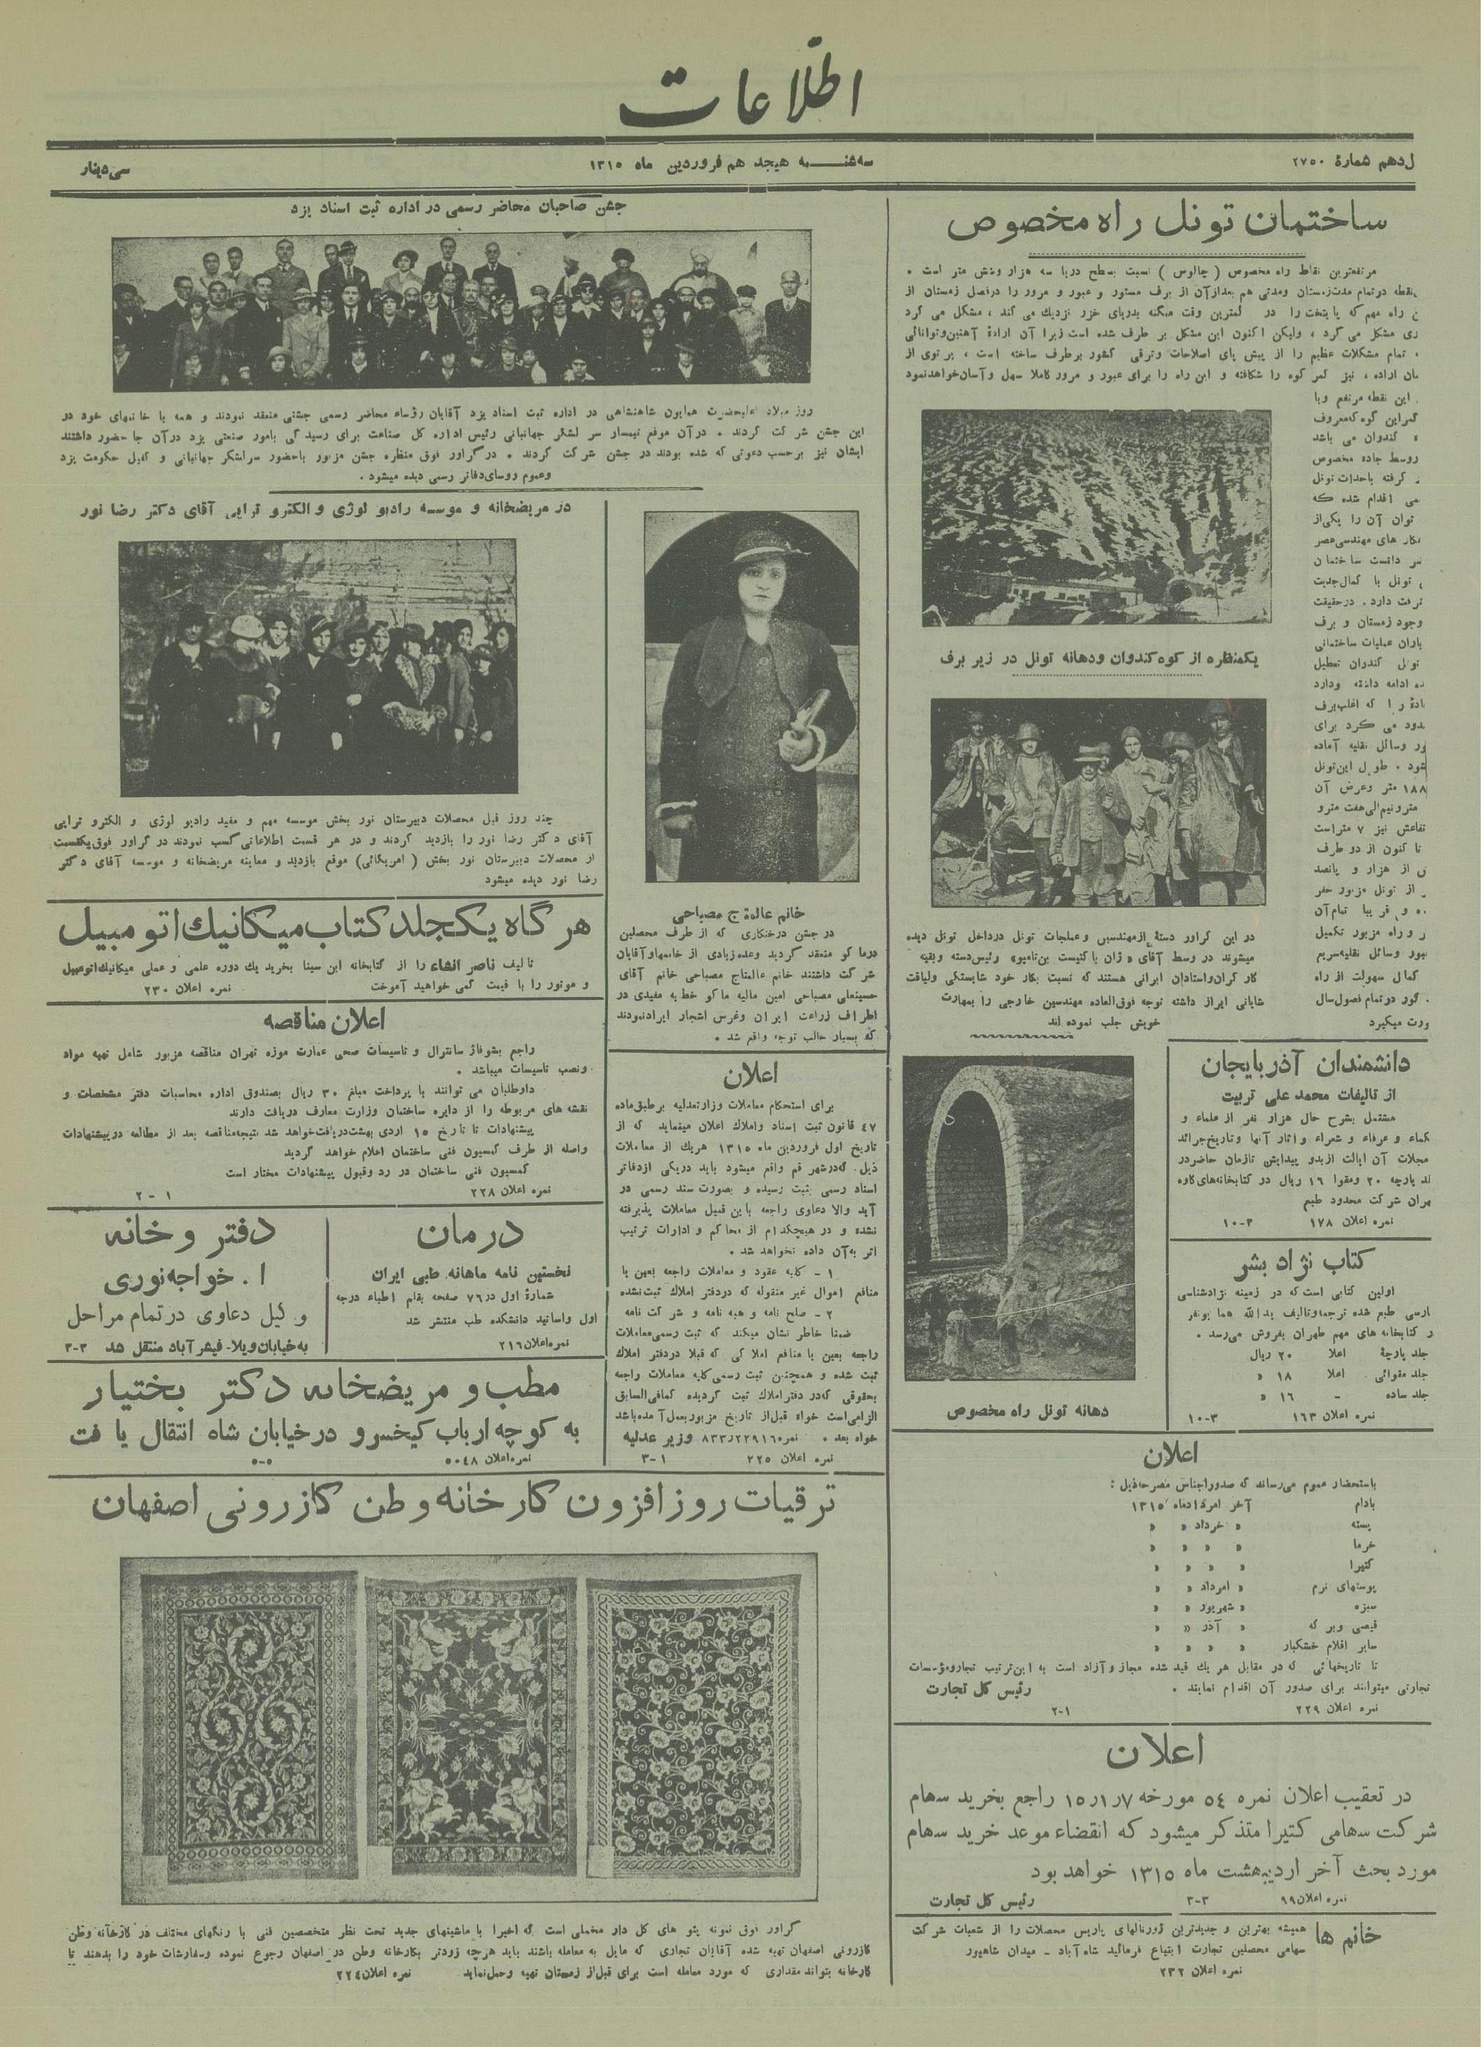 اطلاعات
ل دهم شمارهٔ ۲۷۵۰
سه شنبه هیجدهم فروردین ماه ۱۳۱۵
سی دینار
ساختمان تونل راه مخصوص
مرتفعترین نقاط راه مخصوص ( چالوس ) نسبت بسطح دریا سه هزار وشش متر است .
نقطه درتمام مدت زمستان ومدتی هم بعدازآن از برف مستور و عبور و مرور را درفصل زمستان از
ن راه مهم که پایتخت را در کمترین وقت ممکنه بدریای خزر نزدیک می کند ، مشکل می کرد
ری مشکل می گرد ، ولیکن اکنون این مشکل بر طرف شده است زیرا آن ارادهٔ آهنین وتوانائی
، تمام مشکلات عظیم را از پیش پای اصلاحات وترقی کشور برطرف ساخته است ، پرتوی از
مان اراده ، نیز کمر کوه را شکافته و این راه را برای عبور و مرور کاملا سهل وآسان خواهدنمود
این نقطه مرتفع ویا
کمراین کوه که معروف
ه کندوان می باشد
روسط جاده مخصوص
ر گرفته باحداث تونل
می اقدام شده که
توان آن را یکی از
کار های مهندسی عصر
سر دانست ساختمان
ن تونل با کمال جدیت
شرفت دارد . درحقیقت
وجود زمستان و برف
باران عملیات ساختمانی
تونل کندوان تعطیل
ده ادامه داشته ودارد
اده را که اغلب برف
دود می کرد برای
ور وسائل نقلیه آماده
شود . طول این تونل
۱۸۸ متر وعرض آن
مترونیم الی هفت مترو
تفاعش نیز ۷ متراست
تا کنون از دو طرف
ش از هزار و پانصد
ر از تونل مزبور حفر
ده و قریبا تمام آن
ر و راه مزبور تکمیل
بور وسائل نقلیه سریع
کمال سهولت از راه
کور درتمام فصول سال
ورت میگیرد
یک منظره از کوه کندوان ودهانه تونل در زیر برف
در این گراور دستهٔ ازمهندسین وعملجات تونل درداخل تونل دیده
میشوند در وسط آقای « ژان باتیست بن نامیو» رئیس دسته وبقیه
کارگران واستادان ایرانی هستند که نسبت بکار خود شایستگی ولیاقت
شایانی ابراز داشته توجه فوق العاده مهندسین خارجی را بمهارت
خویش جلب نموده اند
دهانه تونل راه مخصوص
دانشمندان آذربایجان
از تالیفات محمد علی تربیت
مشتمل بشرح حال هزار نفر از علماء و
کماء و عرفاء و شعراء و اثار آنها وتاریخ جرائد
مجلات آن ایالت ازبدو پیدایش تازمان حاضر در
لد پارچه ۲۰ ومقوا ۱۶ ریال در کتابخانه های کاوه
هران شرکت محدود طبع
نمره اعلان ۱۷۸ ۳-۱۰
کتاب نژاد بشر
اولین کتابی است که در زمینه نژادشناسی
ارسی طبع شده ترجمه وتالیف یدالله هما یونفر
ر کتابخانه های مهم طهران بفروش می رسد .
جلد پارچهٔ اعلا ۲۰ ریال
جلد مقوائی اعلا ۱۸ «
جلد ساده - ۱۶ «
نمره اعلان ۱۶۳ ۳-۱۰
اعلان
باستحضار عموم می رساند که صدوراجناس مصرحه ذیل :
بادام آخر امرداد ماه ۱۳۱۵
پسته « خرداد « «
خرما « « « «
کتیرا « « « «
پوستهای نرم « امرداد « «
سبزه « شهریور « «
قیصی وبرگه « آذر « «
سایر اقلام خشکبار « « « «
تا تاریخهائی که در مقابل هر یک قید شده مجاز وآزاد است به این ترتیب تجارومؤسسات
تجارتی میتوانند برای صدور آن اقدام نمایند . رئیس کل تجارت
نمره اعلان ۲۲۹ ۱-۲
اعلان
در تعقیب اعلان نمره ۵۴ مورخه ۱۵ر۱ر۷ راجع بخرید سهام
شرکت سهامی کتیرا متذکر میشود که انقضاء موعد خرید سهام
مورد بحث آخر اردیبهشت ماه ۱۳۱۵ خواهد بود
نمره اعلان ۹۹ ۳-۳ رئیس کل تجارت
خانم ها
همیشه بهترین و جدیدترین ژورنالهای پاریس محصلات را از شعبات شرکت
سهامی محصلین تجارت ابتیاع فرمائید شاه آباد - میدان شاهپور
نمره اعلان ۲۳۲
جشن صاحبان محاضر رسمی در اداره ثبت اسناد یزد
روز میلاد اعلیحضرت همایون شاهنشاهی در اداره ثبت اسناد یزد آقایان رؤساء محاضر رسمی جشنی منعقد نمودند و همه با خانمهای خود در
این جشن شرکت کردند . درآن موقع تیمسار سرلشگر جهانبانی رئیس اداره کل صناعت برای رسیدگی بامور صنعتی یزد درآن جا حضور داشتند
ایشان نیز برحسب دعوتی که شده بودند در جشن شرکت کردند . درگراور فوق منظره جشن مزبور باحضور سرلشگر جهانبانی و کفیل حکومت یزد
وعموم روسای دفاتر رسمی دیده میشود .
در مریضخانه و موسسه رادیو لوژی و الکترو تراپی آقای دکتر رضا نور
چند روز قبل محصلات دبیرستان نور بخش موسسه مهم و مفید رادیو لوژی و الکترو تراپی
آقای دکتر رضا نور را بازدید کردند و در هر قسمت اطلاعاتی کسب نمودند در گراور فوق یکقسمت
از محصلات دبیرستان نور بخش ( امریکائی) موقع بازدید و معاینه مریضخانه و موسسه آقای دکتر
رضا نور دیده میشود
خانم عالمتاج مصباحی
در جشن درختکاری که از طرف محصلین
درما کو منعقد گردید وعده زیادی از خانمها وآقایان
شرکت داشتند خانم عالمتاج مصباحی خانم آقای
حسینعلی مصباحی امین مالیه ماکو خطابه مفیدی در
اطراف زراعت ایران وغرس اشجار ایرادنمودند
که بسیار جالب توجه واقع شد .
هرگاه یکجلد کتاب میکانیك اتومبیل
تالیف ناصر انشاء را از کتابخانه ابن سینا بخرید یك دوره علمی و عملی میکانیك اتومبیل
و موتور را با قیمت کمی خواهید آموخت نمره اعلان ۲۳۰
اعلان مناقصه
راجع بشوفاژ سانترال و تاسیسات صحی عمارت موزه تهران مناقصه مزبور شامل تهیه مواد
ونصب تاسیسات میباشد .
داوطلبان می توانند با پرداخت مبلغ ۳۰ ریال بصندوق اداره محاسبات دفتر مشخصات و
نقشه های مربوطه را از دایره ساختمان وزارت معارف دریافت دارند
پیشنهادات تا تاریخ ۱۵ اردی بهشت دریافت خواهد شد نتیجه مناقصه بعد از مطالعه درپیشنهادات
واصله از طرف کمسیون فنی ساختمان اعلام خواهد گردید
کمسیون فنی ساختمان در رد وقبول پیشنهادات مختار است
نمره اعلان ۲۲۸ ۱-۲
درمان
نخستین نامه ماهانه طبی ایران
شمارهٔ اول در ۷۶ صفحه بقلم اطباء درجه
اول واساتید دانشکده طب منتشر شد
نمره اعلان ۲۱۶
دفتر و خانه
ا . خواجه نوری
وکیل دعاوی درتمام مراحل
به خیابان ویلا - فیشر آباد منتقل شد ۳-۳
مطب و مریضخانه دکتر بختیار
به کوچه ارباب کیخسرو در خیابان شاه انتقال یافت
نمره اعلان ۵۰۴۸ ۵-۵
اعلان
برای استحکام معاملات وزارتعدلیه برطبق ماده
۴۷ قانون ثبت اسناد واملاك اعلان مینماید که از
تاریخ اول فروردین ماه ۱۳۱۵ هریك از معاملات
ذیل که درشهر قم واقع میشود باید دریکی ازدفاتر
اسناد رسمی ثبت رسیده و بصورت سند رسمی در
آید والا دعاوی راجعه باین قبیل معاملات پذیرفته
نشده و در هیچکدام از محاکم و ادارات ترتیب
اثر به آن داده نخواهد شد .
۱ - کلیه عقود و معاملات راجعه بعین یا
منافع اموال غیر منقوله که دردفتر املاك ثبت نشده
۲ - صلح نامه و هبه نامه و شرکت نامه
ضمنا خاطر نشان میکند که ثبت رسمی معاملات
راجعه بعین یا منافع املاکی که قبلا دردفتر املاك
ثبت شده و همچنین ثبت رسمی کلیه معاملات راجعه
بحقوقی که در دفتر املاك ثبت گردیده کمافی السابق
الزامی است خواه قبل از تاریخ مزبور بعمل آمده باشد
خواه بعد . نمره ۸۳۳ر۲۲۹۱۶ وزیر عدلیه
نمره اعلان ۲۲۵ ۱-۳
ترقیات روز افزون کارخانه وطن کازرونی اصفهان
گراور فوق نمونه پتو های گل دار مخملی است که اخیرا با ماشینهای جدید تحت نظر متخصصین فنی با رنگهای مختلف در کارخانه وطن
کازرونی اصفهان تهیه شده آقایان تجاری که مایل به معامله باشند باید هرچه زودتر بکارخانه وطن در اصفهان رجوع نموده وسفارشات خود را بدهند تا
کارخانه بتواند مقداری که مورد معامله است برای قبل از زمستان تهیه وحمل نماید نمره اعلان ۲۲۴